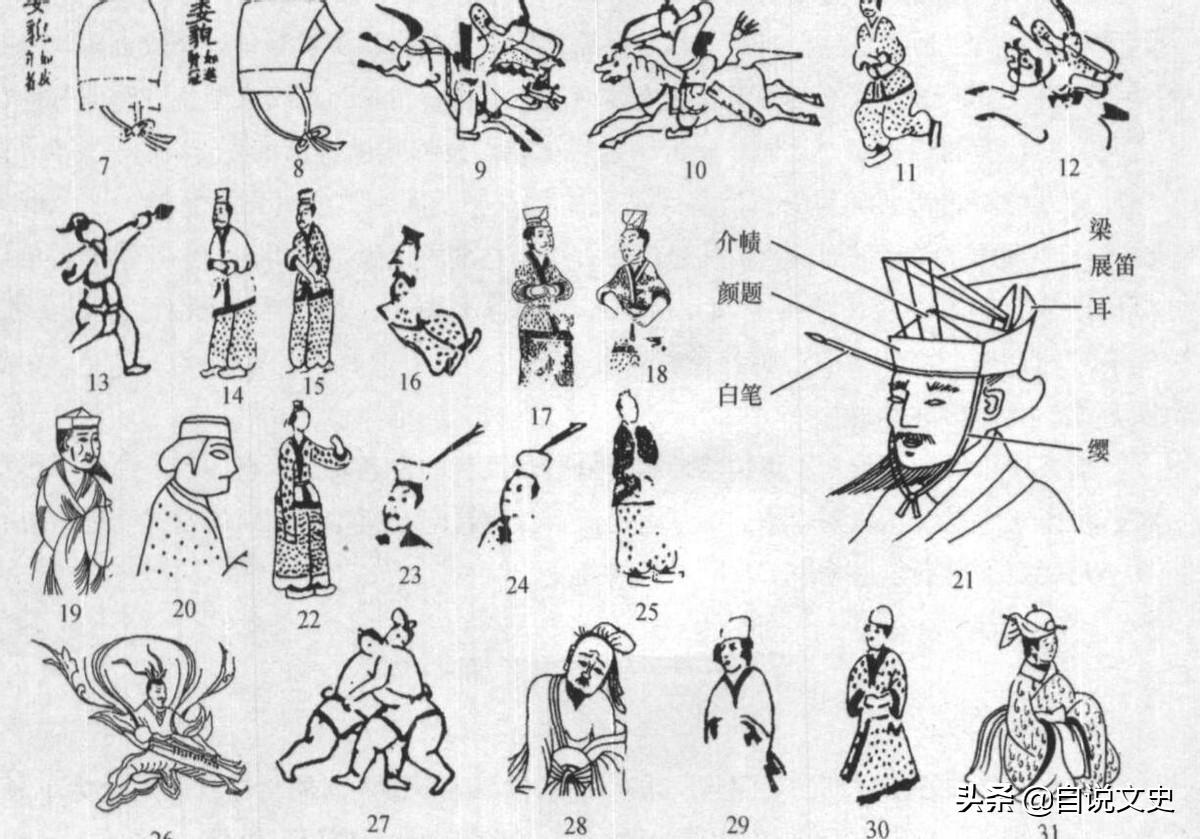 7
8
9
10
11
12
13
14
15
16
17
18
介帻
颜题
白笔
梁
展笛
耳
缨
21
19
20
22
23
24
25
26
27
28
29
30
31
头条 @自说文史